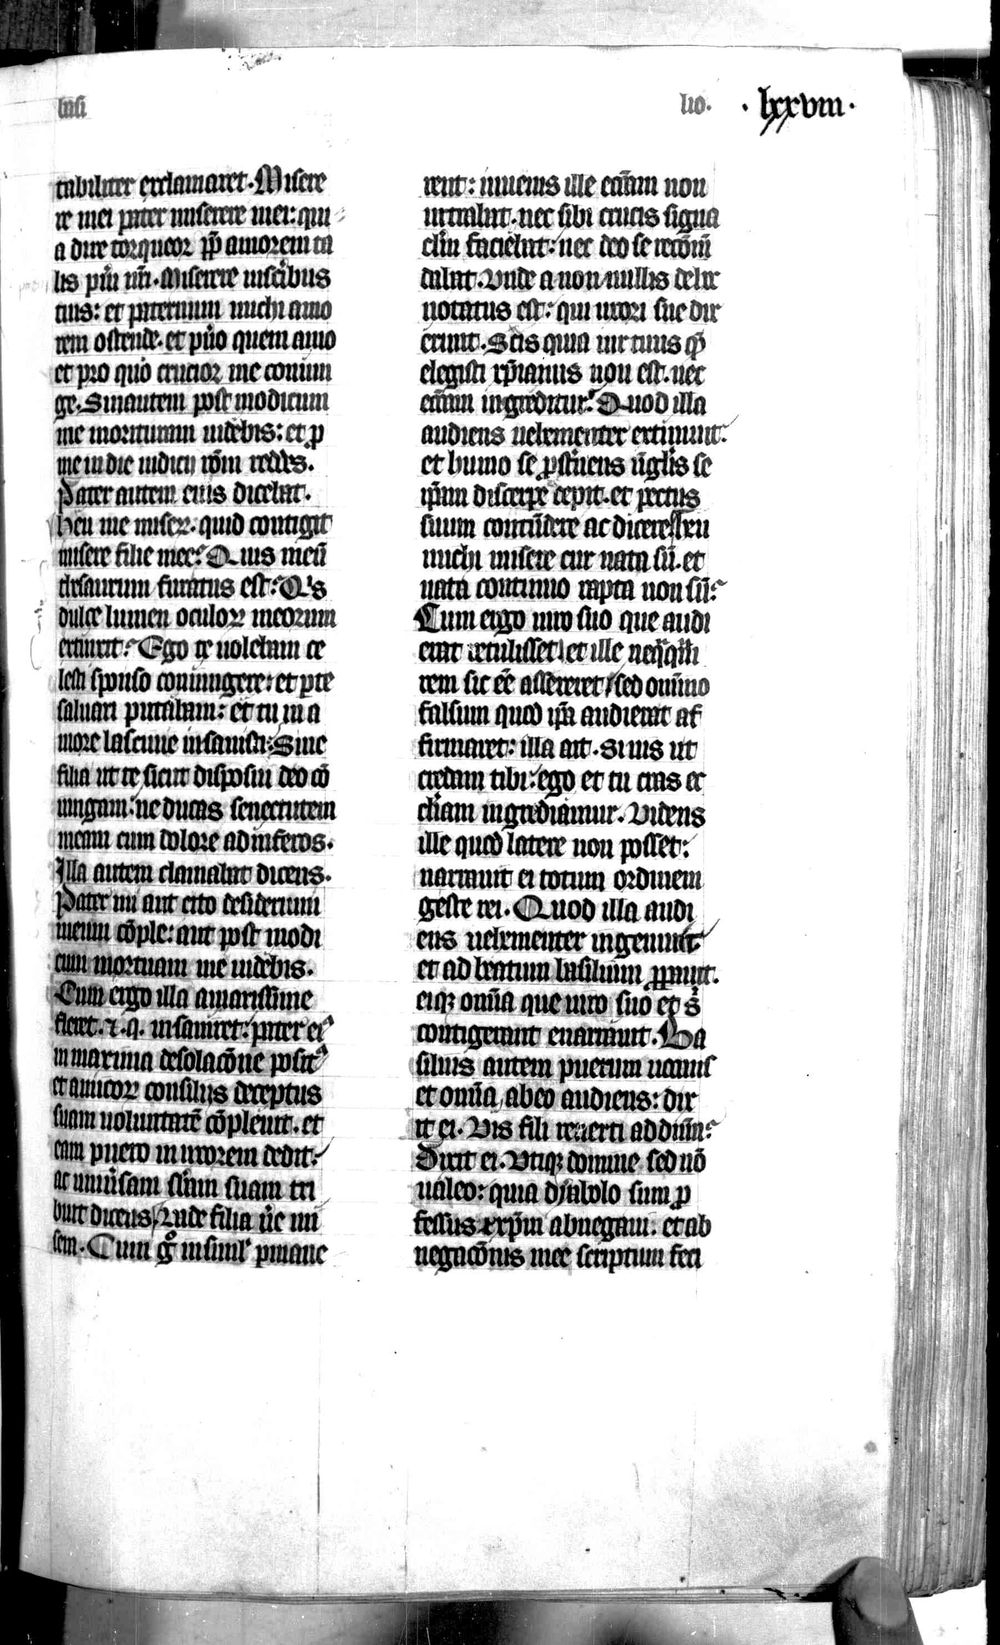 basi
lio.
· lxxviii ·
tabiliter exclamaret. Misere
re mei pater miserere mei: qui
a dire torqueor pp̄ amorem ta
lis pūi nr̄i. Miserere viscībus
tuis: et paternum michi amo
rem ostende. et pūo quem amo
et pro quo crucior me coniun
ge. Sinautem post modicum
me morituram videbis: et ꝓ
me in die iudicij rōm reddes.
Pater autem eius dicebat.
Heu me miseꝝ. quid contigit
misere filie mee? Quis meū
thesaurum furatus est? Qⁱs
dulce lumen oculoꝝ meorum
extinxit? Ego te volebam ce
lesti sponso coniungere: et per te
saluari putabam: et tu in a
more lasciuie insanisti: Sine
filia ut te sicut disposui deo cō
iungam: ne ducas senectutem
meam cum dolore ad inferos.
Illa autem clamabat dicens.
Pater mi aut cito desiderium
meum cōple: aut post modi
cum mortuam me videbis.
Cum ergo illa amarissime
fleret. ⁊. q. insaniret: pater eiꝰ
in maxima desolacōne positꝰ
et amicoꝝ consilijs deceptus
suam voluntatē cōpleuit. et
eam puero in vxorem dedit:
ac vniūsam sb̄am suam tri
buit dicens, Vade filia v̄e mi
sera. Cum gͦ insimul ꝑmane
rent: iuuenis ille ecc̄am non
intrabat. nec sibi crucis signa
clm̄ faciebat: nec deo se recōm̄
dabat. Vnde a non nullis dehr
notatus est: qui vxori sue dix
erunt. Scis quia vir tuus qm̄
elegisti xp̄ianus non est. nec
ecc̄am ingreditur? Quod illa
audiens vehementer extimuit:
et humo se ꝓst̄nens vnglis se
ip̄am discerpe cepit. et pectus
suum contūdere ac dicere. Heu
michi misere cur nata sū. et
nata continuo rapta non sū?
Cum ergo viro suo que audi
erat retulisset et ille neq̄q̄m
rem sic eē assereret sed omīno
falsum quod ip̄a audierat af
firmaret: illa ait. Si vis ut
credam tibi: ego et tu cras ec
cl̄iam ingrediamur. Videns
ille quod latere non posset:
narrauit ei totum ordinem
geste rei. Quod illa audi
ens vehementer ingemuit
et ad beatum basilium ꝓꝑauit.
eiqꝫ omīa que viro suo et s̄
contigerant enarrauit. Ba
silius autem puerum vocans
et omīa ab eo audiens: dix
it ei. Vis fili reuerti ad dūm?
Dixit ei. Vtiqꝫ domine sed nō
valeo: quia dyabolo sum ꝓ
fessus. xp̄m abnegaui. et ab
negacōnis mee scriptum feci